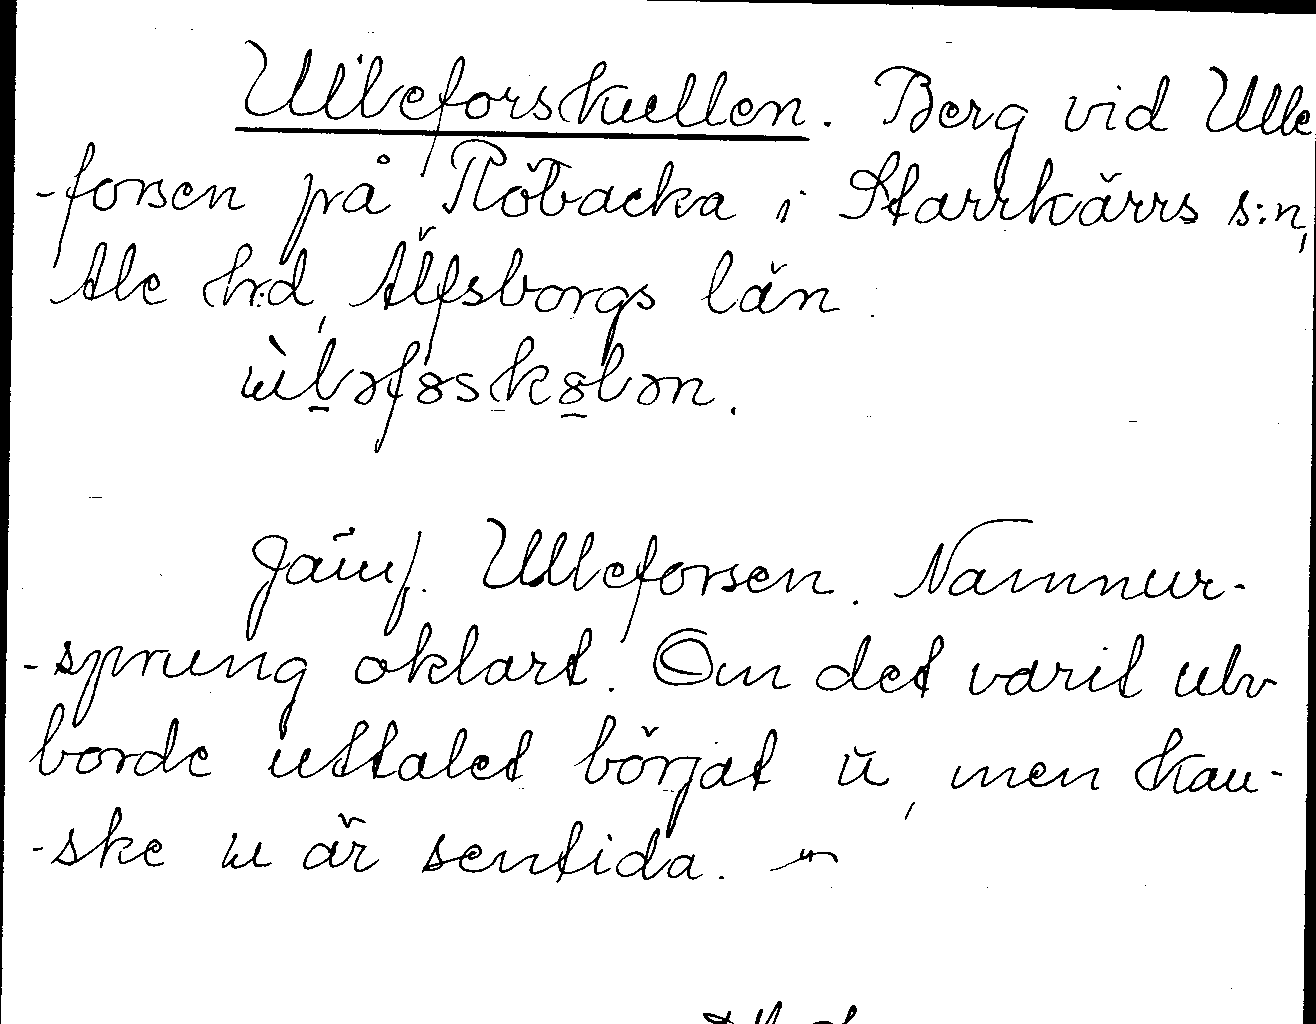 Ulleforskullen. Berg vid Ulle
-forsen på Röbacka i Starrkärrs s:n,
Ale h:d, Älfsborgs län.

Jämf. Ulleforsen. Namnur-
-sprung oklart. Om det varit ulv
borde uttalet börjat ŭ, men kan-
-ske ɯ är sentida.